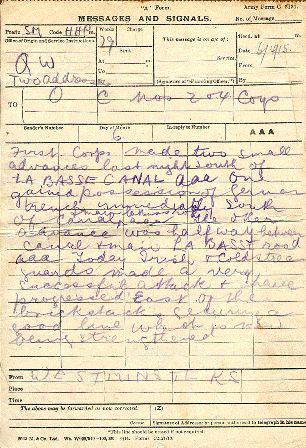 "A" Form.
Army Form C. 2121.
MESSAGES AND SIGNALS.
No. of Message
Prefix SM Code HHP m.
Words
Office of Origin and Service Instructions.
29
Sent
This message is on a/c of:
Recd. at m.
Date 6/2/15
At m.
Service.
From
QW
To
Two addresses
By
By
(Signature of "Franking Officer.")
TO O C Nos 2 & 4 Coys
Sender's Number
Day of Month
In reply to Number
AAA
6
First Corps made two small
advances last night south of
LA BASSE CANAL aaa One
gained possession of German
trench immediately South
of Canal aaa the other
advance was half way between
Canal & main LA BASSE road
aaa Today Irish & Coldstream
guards made a very
successful attack & have
progressed East of the
brickstacks securing a
good line which is now
being strengthened
From WESTMINSTERS
Place
Time
The above may be forwarded as now corrected. (Z)
Censor.
Signature of Addressor or person authorised to telegraph in his name
*This line should be erased if not required.